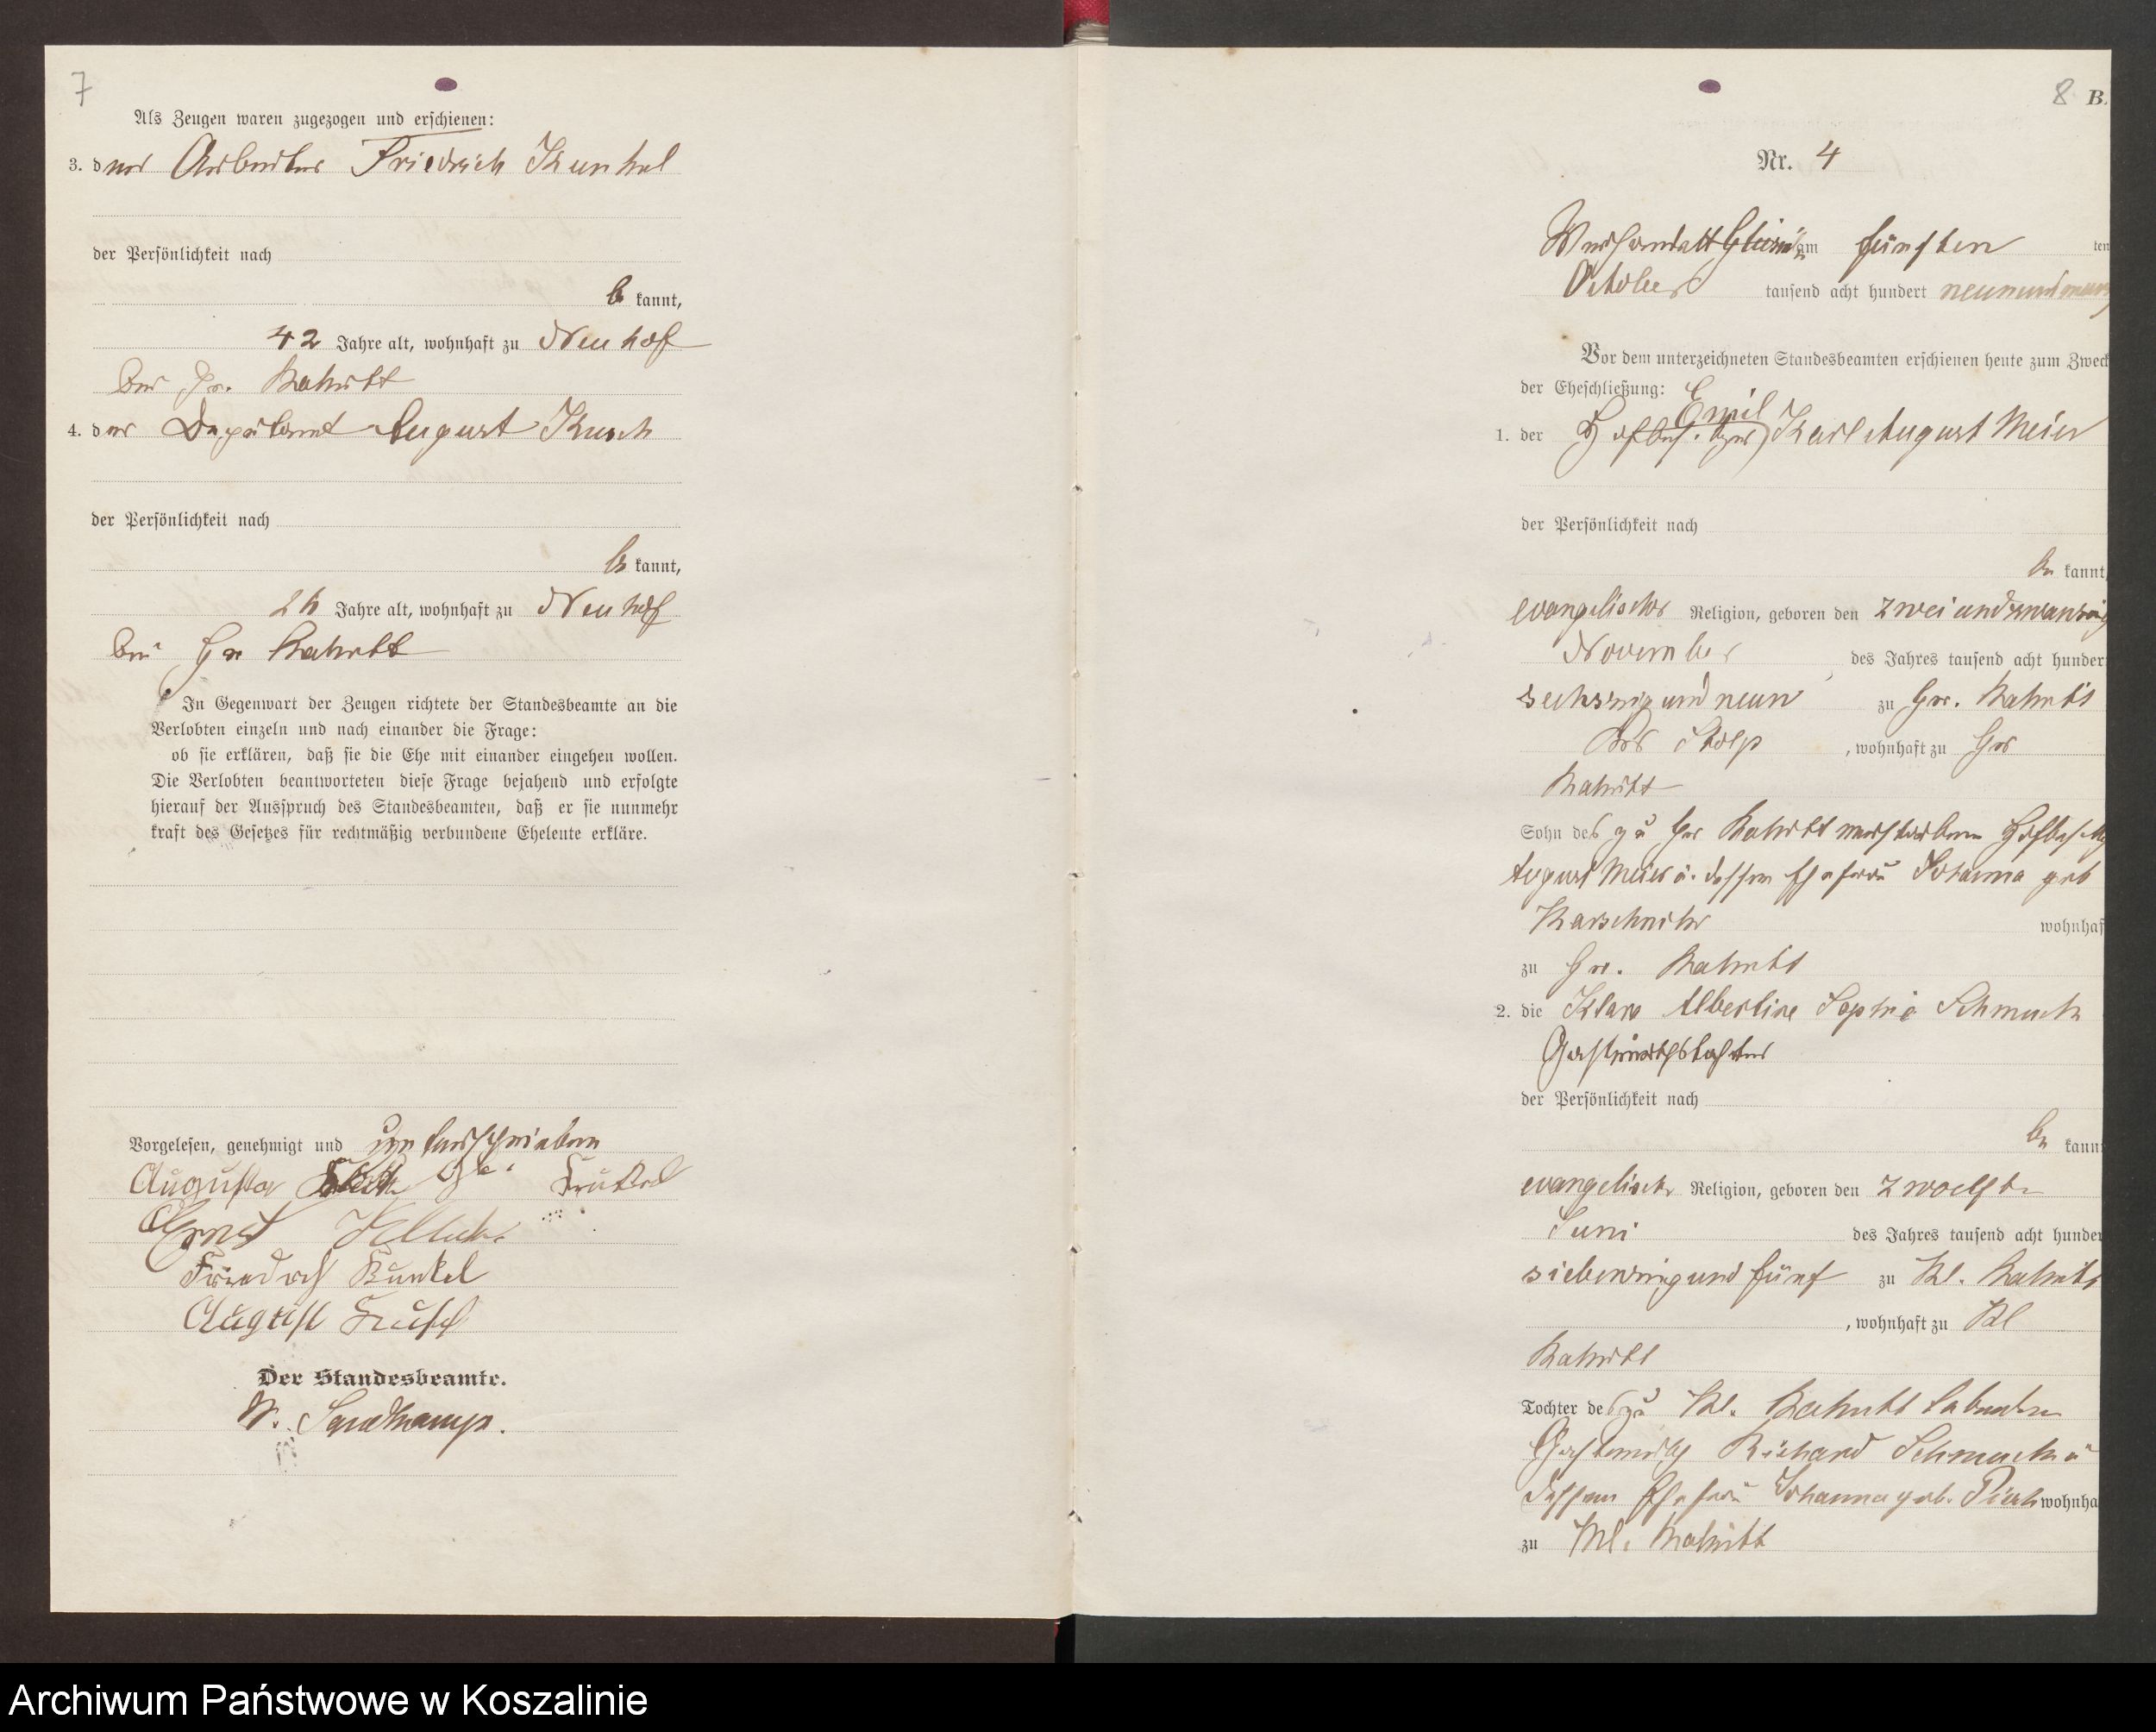 7
Als Zeugen waren zugezogen und erschienen:
3. der Arbeiter Friedrich Kunkel
der Persönlichkeit nach
be kannt,
42 Jahre alt, wohnhaft zu Neuhof
bei Gr. Rakitt
4. der Deputant August Kusch
der Persönlichkeit nach
be kannt,
Jahre alt, wohnhaft zu Neuhof
bei Gr Rakitt
In Gegenwart der Zeugen richtete der Standesbeamte an die
Verlobten einzeln und nach einander die Frage:
ob sie erklären, daß sie die Ehe mit einander eingehen wollen.
Die Verlobten beantworteten diese Frage bejahend und erfolgte
hierauf der Ausspruch des Standesbeamten, daß er sie nunmehr
kraft des Gesetzes für rechtmäßig verbundene Eheleute erkläre.
Vorgelesen, genehmigt und unterschrieben
Auguste
Ernst
Friedrich Kunkel
August Kusch
Der Standesbeamte.
W. Sandkamp.
8 B.
Nr. 4
am fünften ten
October tausend acht hundert neunund
Vor dem unterzeichneten Standesbeamten erschienen heute zum Zweck
der Eheschließung:
Emil
1. der Hofbesitzer Karl August Meier
der Persönlichkeit nach
be kannt,
evangelischer Religion, geboren den zweiundzwanzig
November des Jahres tausend acht hunder
sechszig und neun zu Gr. Rakitt
Krs Stolp, wohnhaft zu Gr
Rakitt
Sohn des zu Gr Rakitt verstorbenen Hofbesitz
August Meier u. dessen Ehefrau Johanna geb
wohnhaf
zu Gr. Rakitt
2. die Klara Albertine Sophie Schmuck
Gastwirthstochter
der Persönlichkeit nach
be kann
evangelischer Religion, geboren den zwoelften
Juni des Jahres tausend acht hunder
siebenzig und fünf zu Kl. Rakitt
, wohnhaft zu Kl
Rakitt
Tochter des zu Kl. Rakitt lebenden
Gastwirth Richard Schmuck u
dessen Ehefrau Johanna geb. wohnha
zu Kl. Rakitt
Archiwum Państwowe w Koszalinie